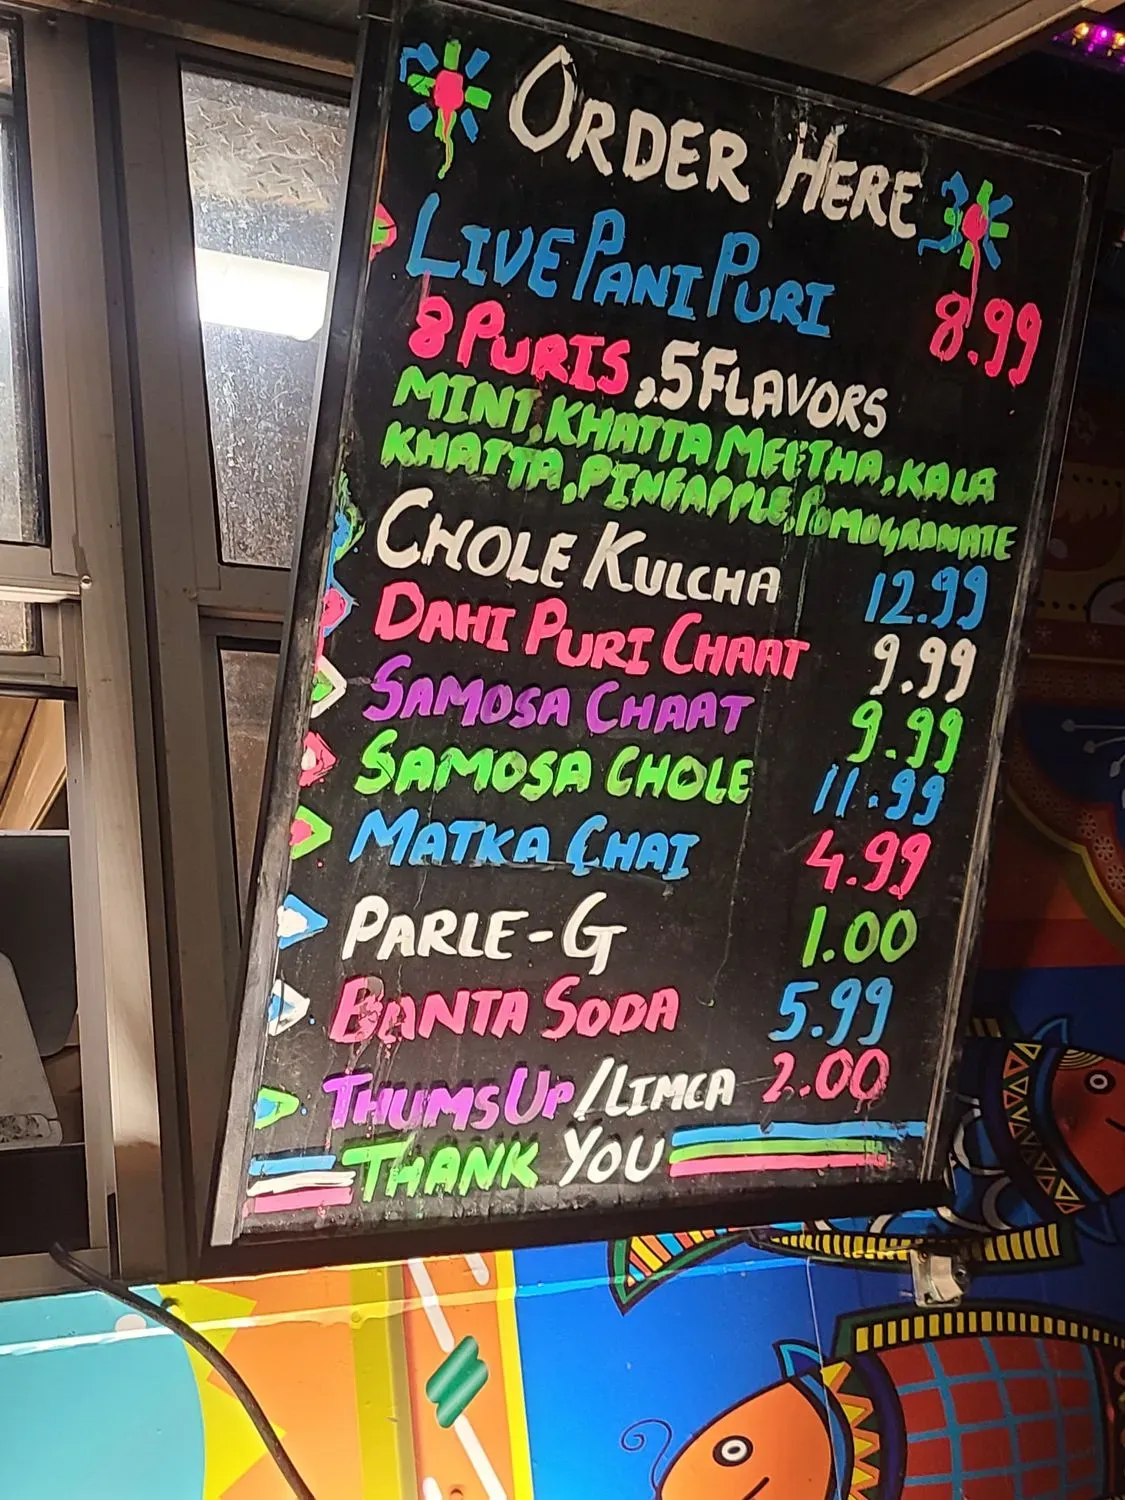 ORDER HERE
LIVE PANI PURI 8.99
8 PURIS, 5 FLAVORS
MINT, KHATTA MEETHA, KALA
KHATTA, PINEAPPLE, POMOGRANATE
CHOLE KULCHA 12.99
DAHI PURI CHAAT 9.99
SAMOSA CHAAT 9.99
SAMOSA CHOLE 11.99
MATKA CHAI 4.99
PARLE-G 1.00
BANTA SODA 5.99
THUMS UP/LIMCA 2.00
THANK YOU